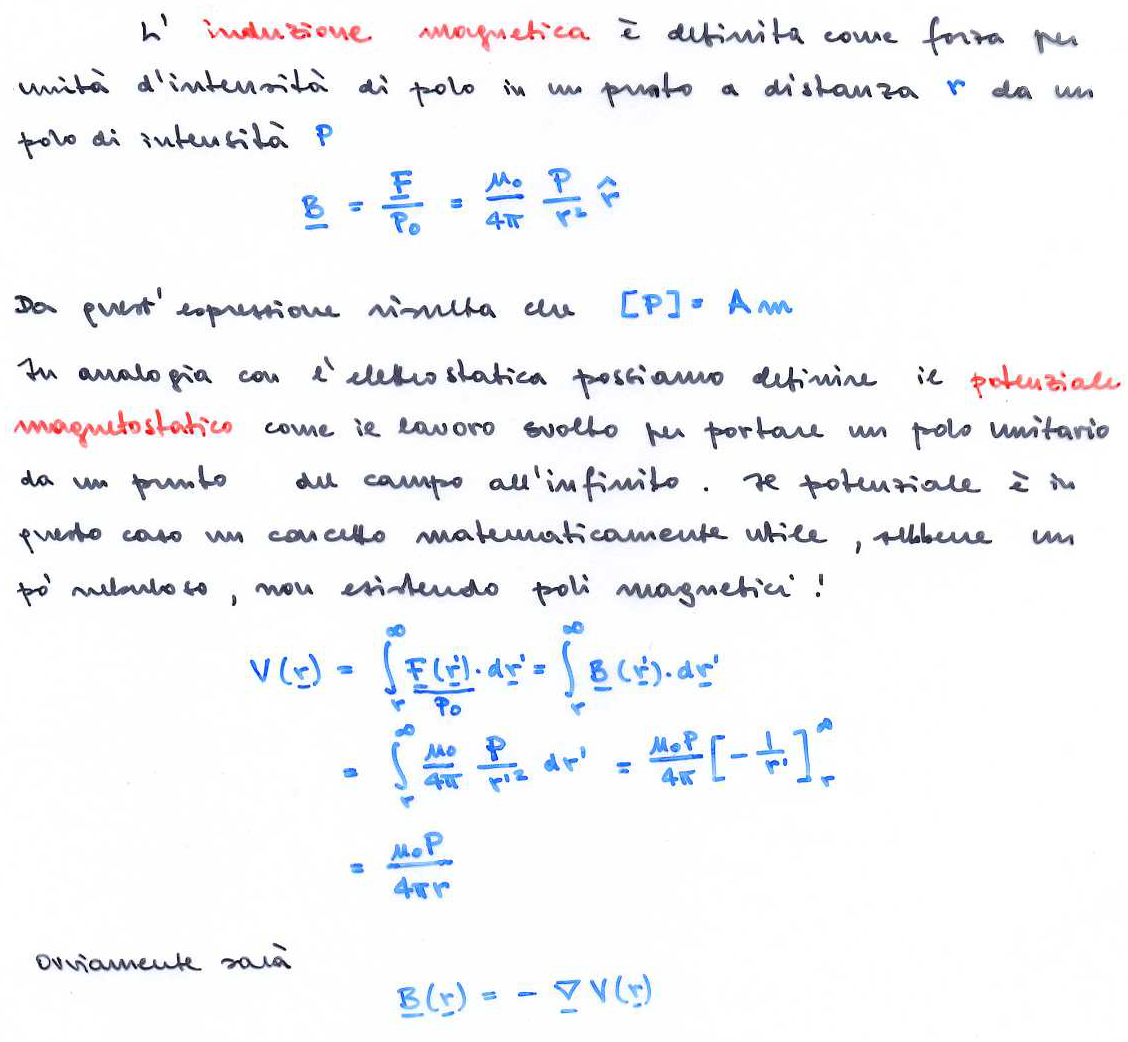 L' induzione magnetica è definita come forza per
unità d'intensità di polo in un punto a distanza r da un
polo di intensità P
B = F/P₀ = μ₀/4π P/r² r̂
Da quest'espressione risulta che [P] = A m
In analogia con l'elettrostatica possiamo definire il potenziale
magnetostatico come il lavoro svolto per portare un polo unitario
da un punto del campo all'infinito. Il potenziale è in
questo caso un concetto matematicamente utile, sebbene un
pò nebuloso, non esistendo poli magnetici!
V(r) = ∫_r^∞ F(r')/P₀ · dr' = ∫_r^∞ B(r') · dr'
= ∫_r^∞ μ₀/4π P/r'² dr' = μ₀P/4π [-1/r']_r^∞
= μ₀P/4πr
Ovviamente sarà
B(r) = - ∇V(r)